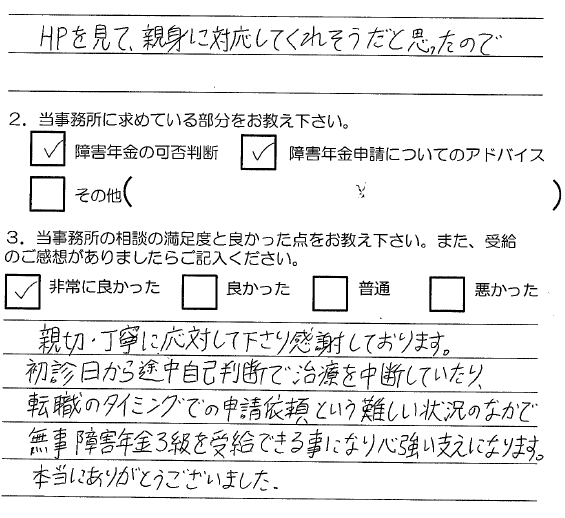 HPを見て、親身に対応してくれそうだと思ったので
2．当事務所に求めている部分をお教え下さい。
☑ 障害年金の可否判断 ☑ 障害年金申請についてのアドバイス
☐ その他( )
3．当事務所の相談の満足度と良かった点をお教え下さい。また、受給
のご感想がありましたらご記入ください。
☑ 非常に良かった ☐ 良かった ☐ 普通 ☐ 悪かった
親切・丁寧に応対して下さり感謝しております。
初診日から途中自己判断で治療を中断していたり、
転職のタイミングでの申請依頼という難しい状況のなかで
無事障害年金3級を受給できる事になり心強い支えになります。
本当にありがとうございました。